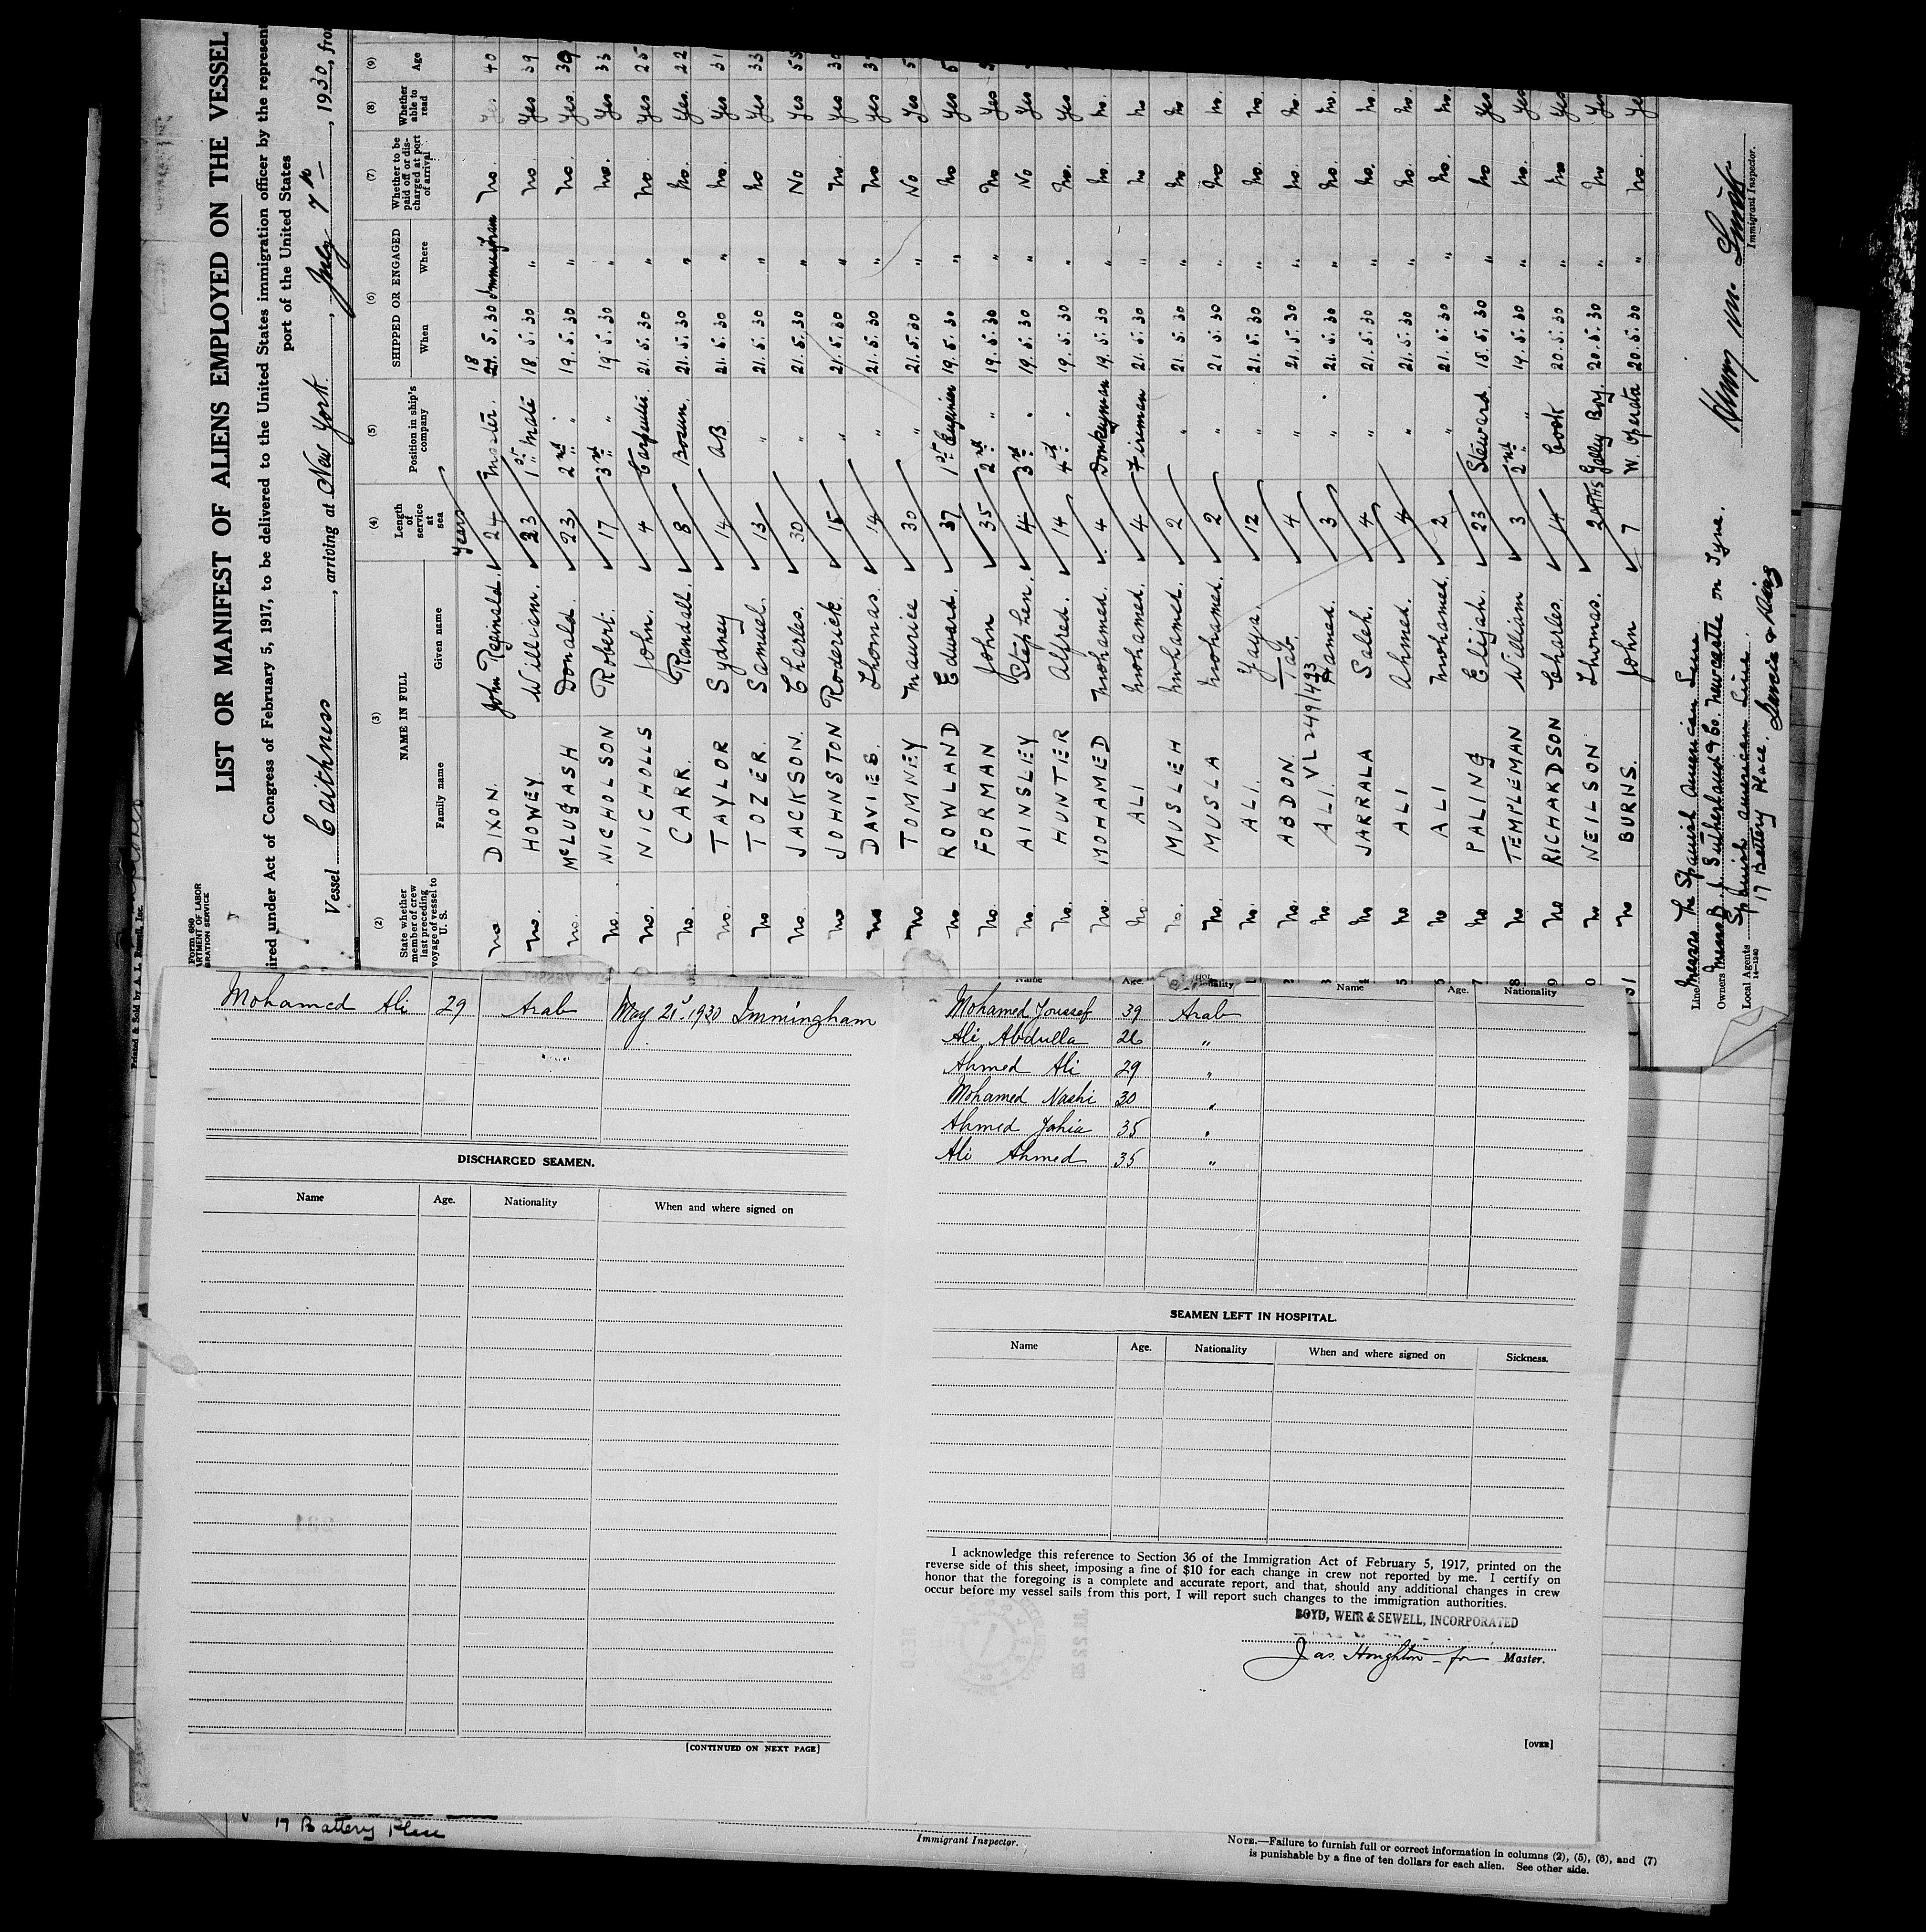 Form 680
LIST OR MANIFEST OF ALIENS EMPLOYED ON THE VESSEL
ired under Act of Congress of February 5, 1917, to be delivered to the United States immigration officer by the represen
port of the United States
Vessel Caithness, arriving at New York, July 7th, 1930, fro
(2) (3) (4) (5) (6) (7) (8) (9)
State whether member of crew last preceding voyage of vessel to U. S. NAME IN FULL Family name Given name Length of service at sea Position in ship's company SHIPPED OR ENGAGED When Where Whether to be paid off or discharged at port of arrival Whether able to read Age
Years
no DIXON. John Reginald. 24 Master. 18 21.5.30 Immingham no. Yes 40
no. HOWEY William. 23 1st Mate 18.5.30 " no. Yes 39
no. McLUGASH Donald. 23 2nd " 19.5.30 " no. Yes. 39
no. NICHOLSON Robert. 17 3rd " 19.5.30 " no. Yes 33
no. NICHOLLS John. 4 Carpenter. 21.5.30 " no. Yes 25
no. CARR. Randall. 8 Bosun. 21.5.30 " no. Yes. 22
no. TAYLOR Sydney 14 AB 21.5.30 " no. Yes 31
no TOZER. Samuel. 13 " 21.5.30 " no. Yes 33
no. JACKSON. Charles. 30 " 21.5.30 " No Yes 55
no JOHNSTON Roderick. 15 " 21.5.30 " no. Yes
no DAVIES. Thomas. 14 " 21.5.30 " no Yes
no TOMNEY Maurice 30 " 21.5.30 " No Yes
no ROWLAND Edward. 37 1st Engineer 19.5.30 " no Yes
no. FORMAN John 35 2nd " 19.5.30 " no. Yes
no. AINSLEY Stephen. 4 3rd " 19.5.30 " No Yes
no. HUNTER Alfred. 14 4th " 19.5.30 " no. Yes
no. MOHAMED Mohamed. 4 Donkeyman 19.5.30 " no. no.
no. ALI Mohamed. 4 Fireman 21.5.30 " no no.
no. MUSLEH Mohamed. 2 " 21.5.30 " no. no
no. MUSLA Mohamed. 2 " 21.5.30 " no no.
no. ALI. Yaya. 12 " 21.5.30 " no. no.
no. ABDON. Tab. 4 " 21.5.30 " no. no.
no. ALI. VL 249/433 Hamed. 3 " 21.5.30 " no. no.
no JARRALA Saleh. 4 " 21.5.30 " no. no.
no ALI Ahmed. 4 " 21.5.30 " no. no.
no ALI Mohamed. 2 " 21.5.30 " no. no.
no PALING Elijah. 23 Steward. 18.5.30 " no Yes
no TEMPLEMAN William 3 2nd " 19.5.30 " no. Yes
no RICHARDSON Charles. 14 Cook 20.5.30 " no Yes
no NEILSON Thomas. 2 MTHS Galley Boy. 20.5.30 " no Yes
no BURNS. John 7 W. Operator 20.5.30 " no. Ye
Line Messrs The Spanish American Line
Owners Messrs B. J. Sutherland & Co. Newcastle on Tyne.
Local Agents Spanish American Line.
17 Battery Place.
14—1240
Henry M. Smith
Immigrant Inspector.
Printed & Sold by A. L. Russell, Inc.
Mohamed Ali 29 Arab May 21st 1930 Immingham
"
DISCHARGED SEAMEN.
Name Age. Nationality When and where signed on
[CONTINUED ON NEXT PAGE]
Name Age. Nationality Name Age. Nationality
Mohamed Youssef 39 Arab
Ali Abdulla 26 "
Ahmed Ali 29 "
Mohamed Nashi 30 "
Ahmed Yahia 35 "
Ali Ahmed 35 "
SEAMEN LEFT IN HOSPITAL.
Name Age. Nationality When and where signed on Sickness.
I acknowledge this reference to Section 36 of the Immigration Act of February 5, 1917, printed on the
reverse side of this sheet, imposing a fine of $10 for each change in crew not reported by me. I certify on
honor that the foregoing is a complete and accurate report, and that, should any additional changes in crew
occur before my vessel sails from this port, I will report such changes to the immigration authorities.
BOYD, WEIR & SEWELL, INCORPORATED
Jas. Houghton - for Master.
[OVER]
17 Battery Place
Immigrant Inspector.
NOTE.—Failure to furnish full or correct information in columns (2), (5), (6), and (7)
is punishable by a fine of ten dollars for each alien. See other side.